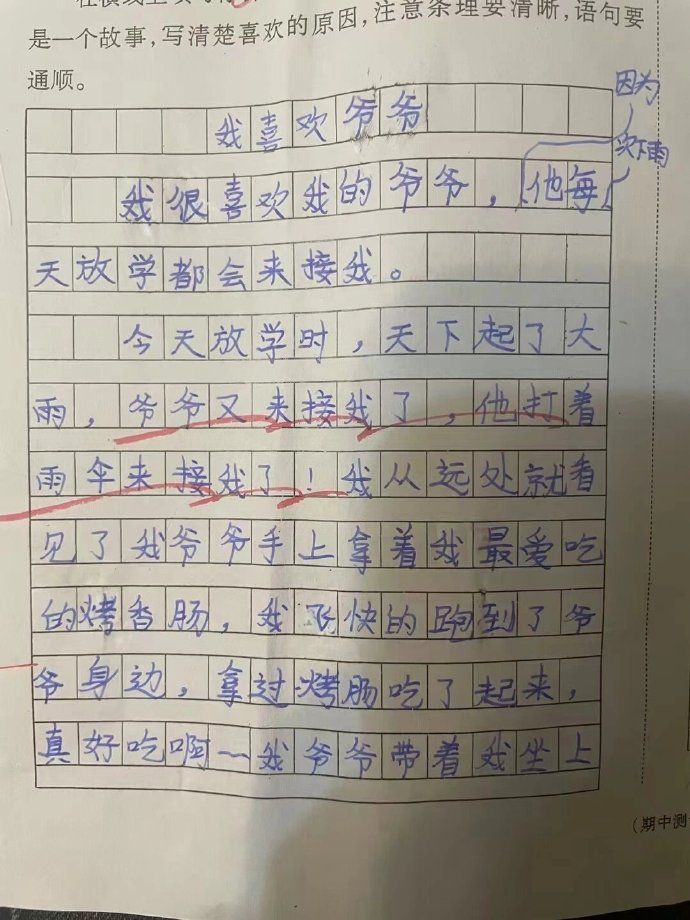 是一个故事,写清楚喜欢的原因,注意条理要清晰,语句要
通顺。
我喜欢爷爷
因为
次下雨
我很喜欢我的爷爷,他每
天放学都会来接我。
今天放学时,天下起了大
雨,爷爷又来接我了,他打着
雨伞来接我了!我从远处就看
见了我爷爷手上拿着我最爱吃
的烤香肠,我飞快的跑到了爷
爷身边,拿过烤肠吃了起来,
真好吃啊~我爷爷带着我坐上
(期中测